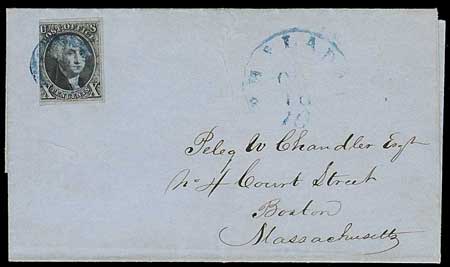 U S
POST OFFICE
X X
PHILADA
OCT
10
Peleg W Chandler Esqr
No 4 Court Street
Boston
Massachusetts